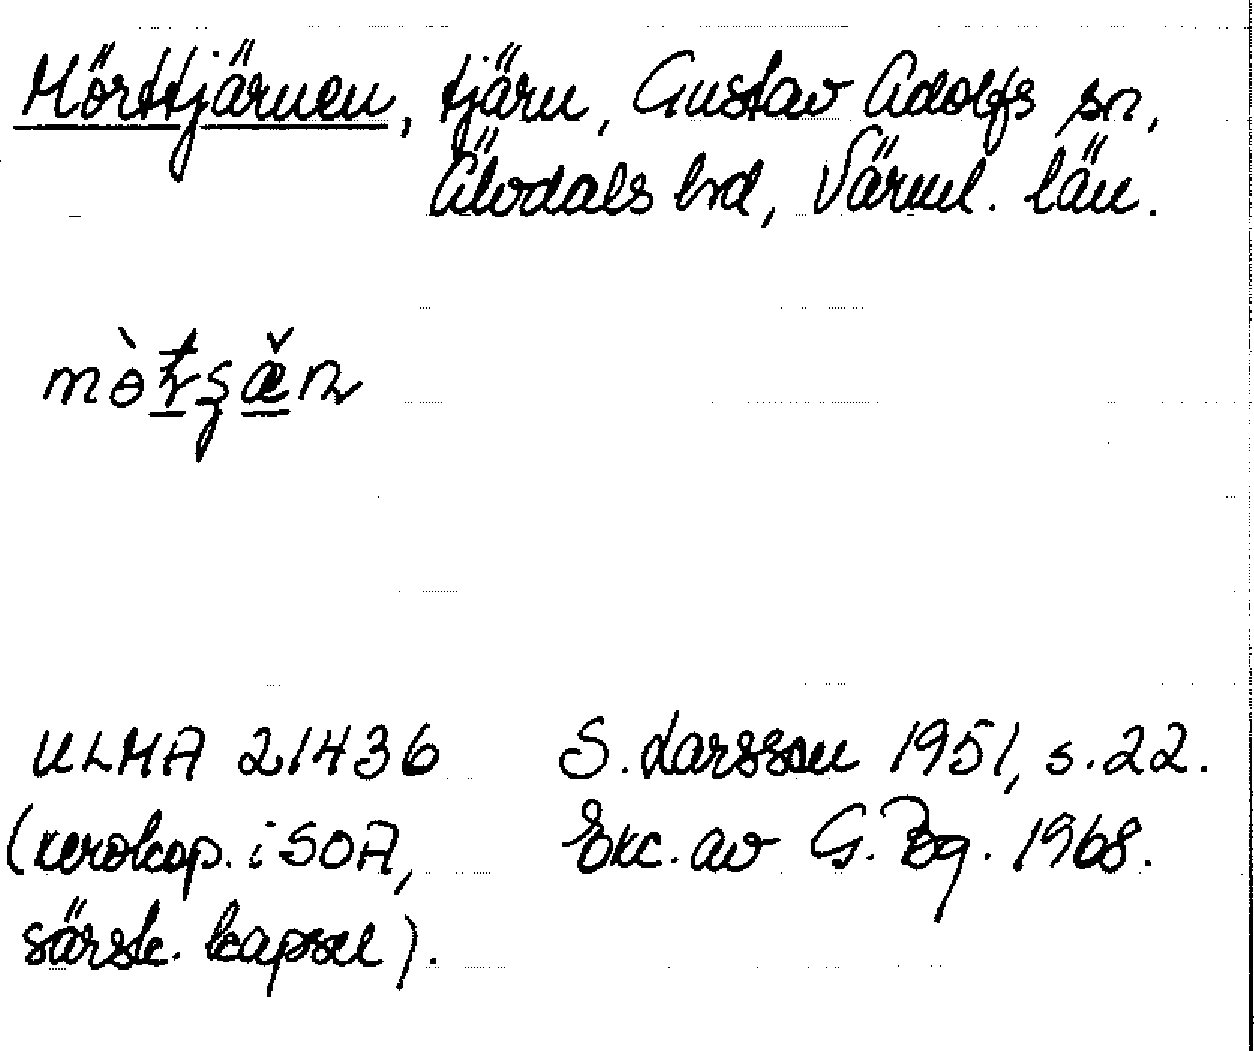 Mörttjärnen, tjärn, Gustav Adolfs sn,
Älvdals hd, Värml. län.
ULMA 21436 S. Larsson 1951, s. 22.
(xerokop. i SOA, Exc. av G. Bg. 1968.
särsk. kapsel).